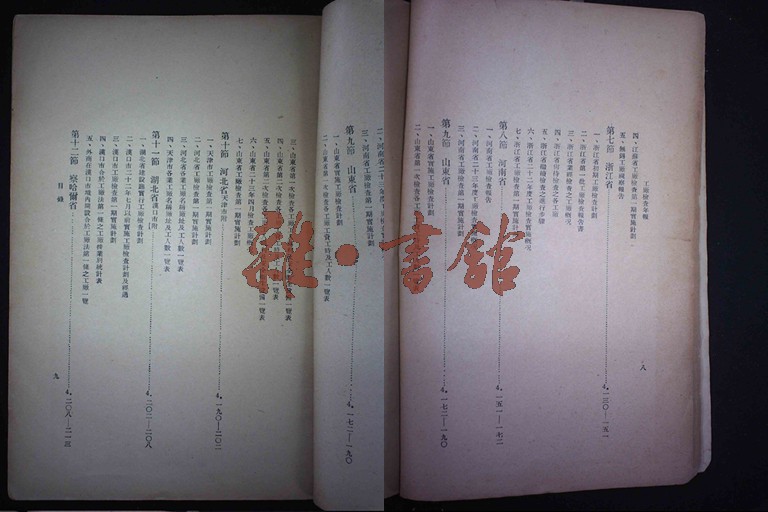 工廠檢查年報
八
四、江蘇省工廠檢查第一期實施計劃
五、無錫工廠視察報告
第七節 浙江省 4.一三〇—一五一
一、浙江省初期工廠檢查計劃
二、浙江省第一批工廠檢查報告書
三、浙江省業經檢查之工廠概況
四、浙江省尚待檢查之各工廠
五、浙江省賡續檢查之進行步驟
六、浙江省二十二年度工廠檢查實施概況
七、浙江省工廠檢查第一期實施計劃
第八節 河南省 4.一五一—一七二
一、河南省工廠檢查報告
二、河南省二十三年度工廠檢查
三、河南省工廠檢查第一期實施計劃
第九節 山東省 4.一七二—一九〇
一、山東省實施工廠檢查計劃
二、山東省第一次檢查各工
三、河南省工廠檢查第一期實施計劃
第九節 山東省 4.一七二—一九〇
一、山東省實施工廠檢查計劃
二、山東省第一次檢查各工廠工資工時及工人數一覽表
三、山東省第一次檢查各工廠
四、山東省第二次檢查各工
五、山東省第二次檢查各工廠
六、山東省二十三年七月檢查工廠
七、山東省工廠檢查第一期實施計劃
第十節 河北省天津市附 4.一九〇—二〇二
一、天津市工廠檢查第一期實施計劃
二、河北省工廠檢查第一期實施計劃
三、河北省各業工廠名稱地址及工人數一覽表
四、天津市各業工廠名稱地址及工人數一覽表
第十一節 湖北省漢口市附 4.二〇二—二〇八
一、湖北省建設廳實行工廠檢查計劃
二、漢口市二十二年七月以前實施工廠檢查計劃及經過
三、漢口市工廠檢查第一期實施計劃
四、漢口市合於工廠法第一條之工廠按業別統計表
五、外商在漢口市境內開設合於工廠法第一條之工廠一覽
第十二節 察哈爾省 4.二〇八—二一三
目錄
九
雜·書館